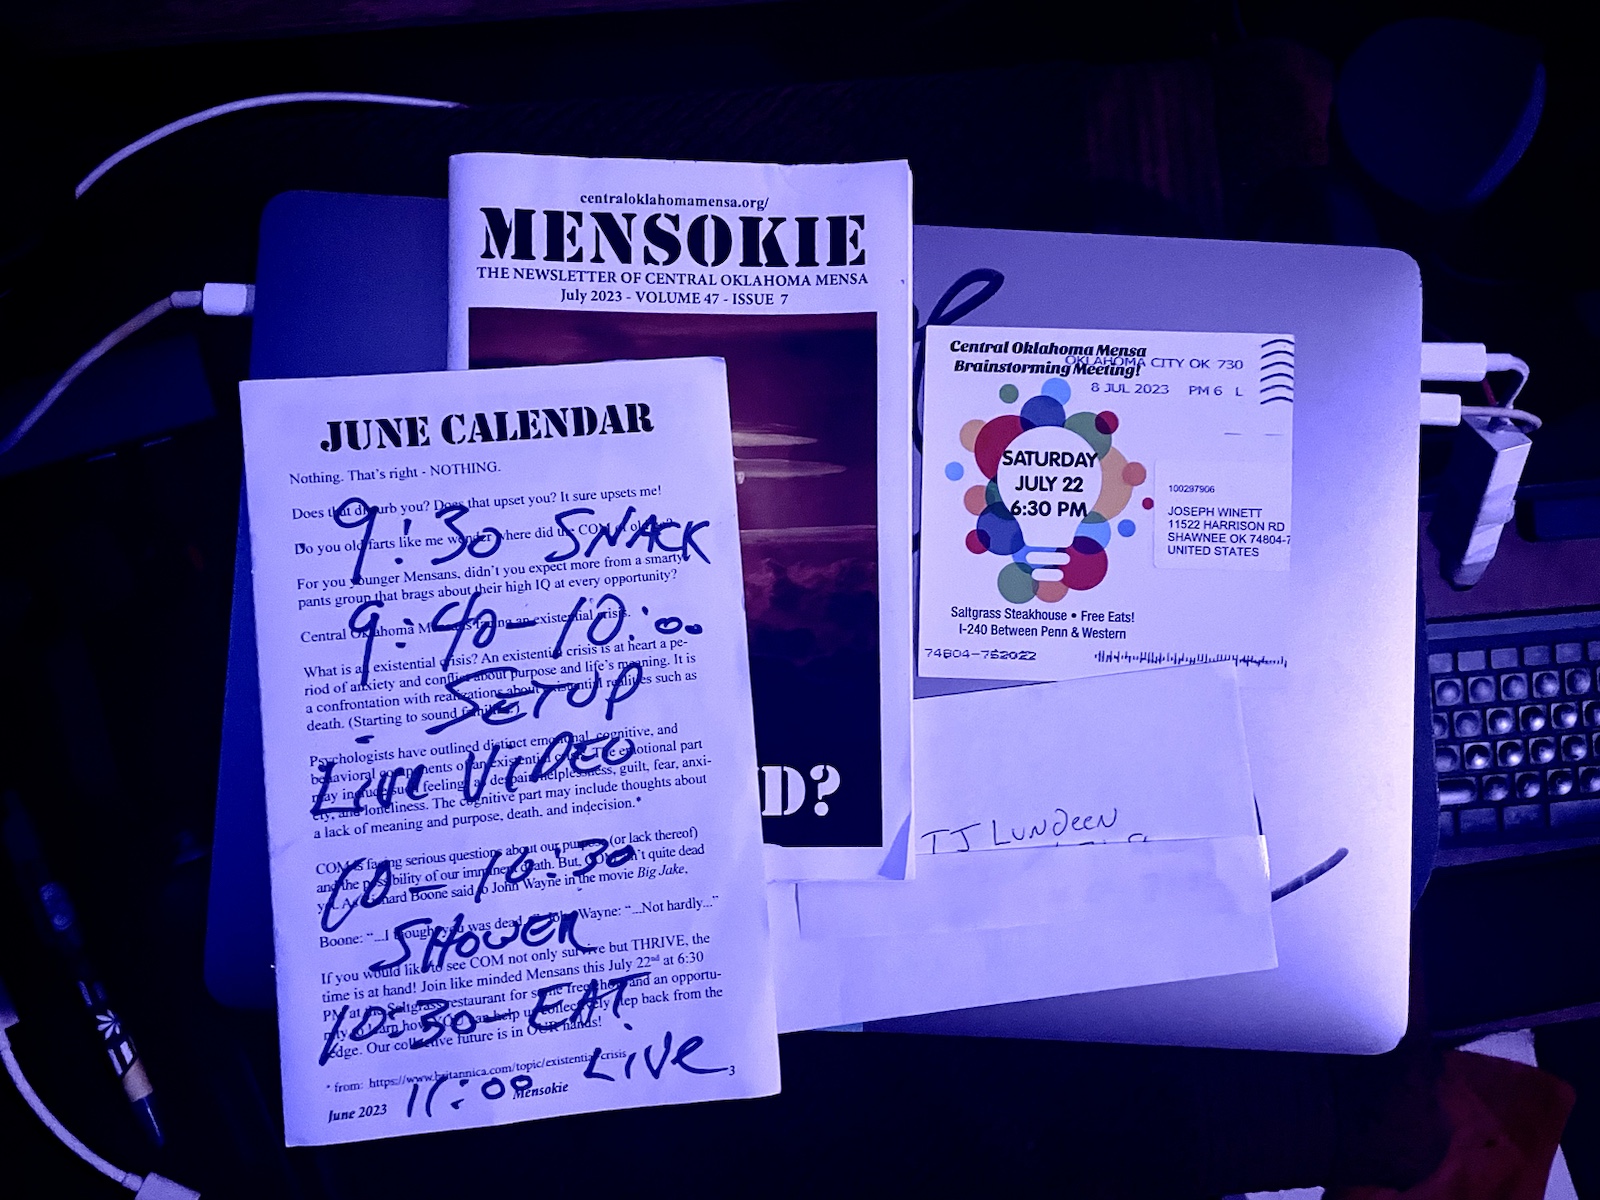 centraloklahomamensa.org/
MENSOKIE
THE NEWSLETTER OF CENTRAL OKLAHOMA MENSA
July 2023 - VOLUME 47 - ISSUE 7
D?
Central Oklahoma Mensa
Brainstorming Meeting!
OKLAHOMA CITY OK 730
8 JUL 2023 PM 6 L
SATURDAY
JULY 22
6:30 PM
100297906
JOSEPH WINETT
11522 HARRISON RD
SHAWNEE OK 74804-7
UNITED STATES
Saltgrass Steakhouse • Free Eats!
I-240 Between Penn & Western
74804-752022
TJ LUNDEEN
JUNE CALENDAR
Nothing. That's right - NOTHING.
Does that disturb you? Does that upset you? It sure upsets me!
Do you old farts like me wonder where did the COM of old go?
For you younger Mensans, didn't you expect more from a smarty
pants group that brags about their high IQ at every opportunity?
Central Oklahoma Mensa is facing an existential crisis.
What is an existential crisis? An existential crisis is at heart a pe-
riod of anxiety and conflict about purpose and life's meaning. It is
a confrontation with realizations about existential realities such as
death. (Starting to sound familiar?)
Psychologists have outlined distinct emotional, cognitive, and
behavioral components of an existential crisis. The emotional part
may include such feelings as despair, helplessness, guilt, fear, anxi-
ety, and loneliness. The cognitive part may include thoughts about
a lack of meaning and purpose, death, and indecision.*
COM is facing serious questions about our purpose (or lack thereof)
and the possibility of our imminent death. But, COM isn't quite dead
yet. As Richard Boone said to John Wayne in the movie Big Jake,
Boone: "...I thought you was dead." John Wayne: "...Not hardly..."
If you would like to see COM not only survive but THRIVE, the
time is at hand! Join like minded Mensans this July 22nd at 6:30
PM at the Saltgrass restaurant for some free chow and an opportu-
nity to learn how YOU can help us collectively step back from the
edge. Our collective future is in OUR hands!
* from: https://www.britannica.com/topic/existential-crisis
June 2023 Mensokie 3
9:30 SNACK
9:40-10:00
SETUP
LIVE VIDEO
10-10:30
SHOWER
10:30-EAT
11:00 LIVE